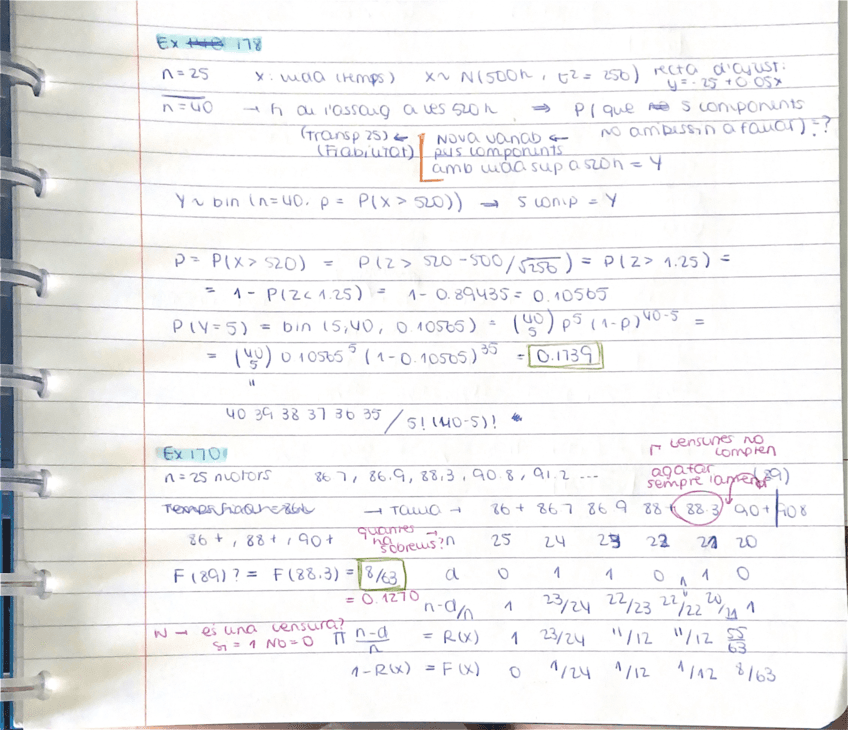 Ex 178
n=25 x: vida (temps) x~ N(500h, σ2 = 256) recta d'ajust: y=-25+0.05x
n=40 → fi de l'assaig a les 520h ⇒ P(que 5 components
no arribessin a fallar)=?
(Transp 25) ← Nova variab ←
(Fiabilitat) pus components
amb vida sup a 520h = Y
Y ~ bin (n=40, p = P(X > 520)) → 5 comp = Y
P = P(X > 520) = P(Z > 520-500/√256) = P(Z > 1.25) =
= 1 - P(Z < 1.25) = 1 - 0.89435 = 0.10565
P(Y=5) = bin (5,40, 0.10565) = (40 5) p^5 (1-p)^40-5 =
= (40 5) 0.10565^5 (1-0.10565)^35 = 0.1739
"
40 39 38 37 36 35 / 5!(40-5)!
Ex 170
censures no compten
n=25 motors 86.7, 86.9, 88.3, 90.8, 91.2 ...
agafar sempre l'anterior (89)
→ Taula → 86+ 86.7 86.9 88+ 88.3 90+ 90.8
86+, 88+, 90+ quantes → n 25 24 23 22 21 20
F(89)? = F(88.3) = 8/63 d 0 1 1 0 1 0
= 0.1270 n-d/n 1 23/24 22/23 22/22 20/21 1
N → es una censura? Π n-d/n = R(x) 1 23/24 11/12 11/12 55/63
Si = 1 No = 0
1-R(x) = F(x) 0 1/24 1/12 1/12 8/63